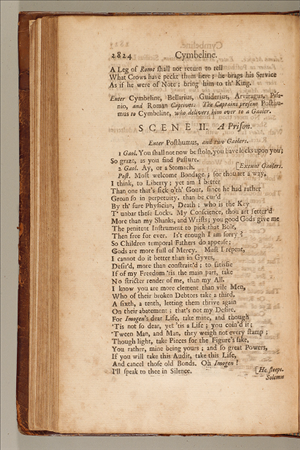 2824 Cymbeline.
A Leg of Rome shall not return to tell
What Crows have peckt them here; he brags his Service
As if he were of Note; bring him to th' King.
Enter Cymbeline, Bellarius, Guiderius, Arviragus, Pisa-
nio, and Roman Captives. The Captains present Posthu-
mus to Cymbeline, who delivers him over to a Gaoler.
SCENE II. A Prison.
Enter Posthumus, and two Gaolers.
1 Gaol. You shall not now be stoln, you have locks upon you;
So graze, as you find Pasture.
2 Gaol. Ay, or a Stomach. [Exeunt Gaolers.
Post. Most welcome Bondage; for thou art a way,
I think, to Liberty; yet am I better
Than one that's sick o'th' Gout, since he had rather
Groan so in perpetuity, than be cur'd
By th' sure Physician, Death; who is the Key
T' unbar these Locks. My Conscience, thou art fetter'd
More than my Shanks, and Wrists; you good Gods give me
The penitent Instrument to pick that Bolt,
Then free for ever. Is't enough I am sorry?
So Children temporal Fathers do appease;
Gods are more full of Mercy. Must I repent,
I cannot do it better than in Gyves,
Desir'd, more than constrain'd; to satisfie
If of my Freedom 'tis the main part, take
No stricter render of me, than my All.
I know you are more clement than vile Men,
Who of their broken Debtors take a third,
A sixth, a tenth, letting them thrive again
On their abatement; that's not my Desire.
For Imogen's dear Life, take mine, and though
'Tis not so dear, yet 'tis a Life; you coin'd it;
'Tween Man, and Man, they weigh not every stamp;
Though light, take Pieces for the Figure's sake,
You rather, mine being yours; and so great Powers,
If you will take this Audit, take this Life,
And cancel those old Bonds. Oh Imogen!
I'll speak to thee in Silence. [He sleeps.
Solemn